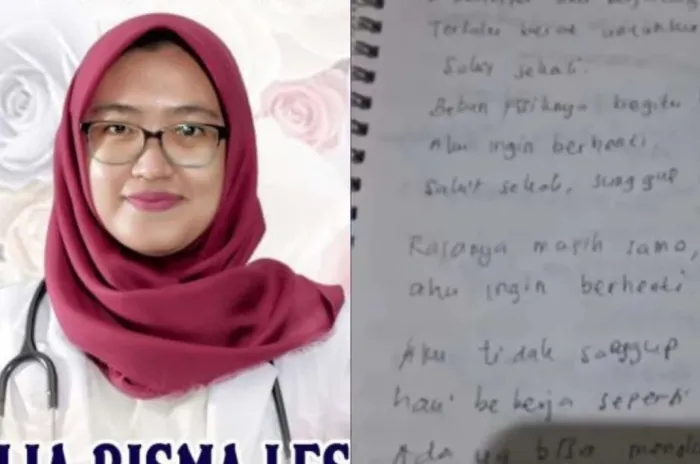 Terlalu berat untukku
sekali.
Beban fisiknya begitu
Aku ingin berhenti.
Sakit sekali, sungguh
Rasanya masih sama,
aku ingin berhenti
Aku tidak sanggup
hari bekerja seperti
Ada yg bisa
LIA RISMA LES